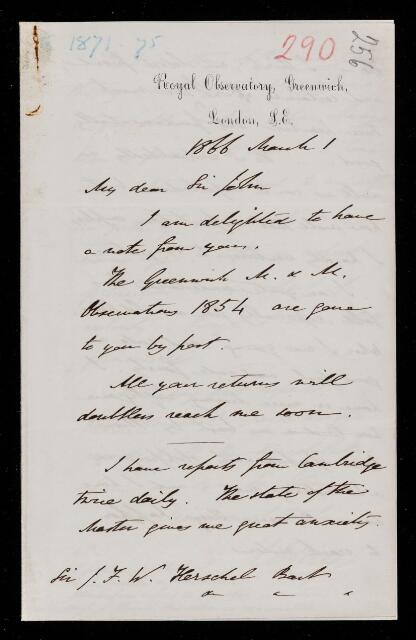 1871-75
290
256
Royal Observatory, Greenwich,
London, S.E.
1866 March 1
My dear Sir John
I am delighted to have
a note from you.
The Greenwich M. & M.
Observations 1854 are gone
to you by post.
All your returns will
doubtless reach me soon.
I have reports from Cambridge
twice daily. The state of the
Master gives me great anxiety.
Sir J. F. W. Herschel Bart